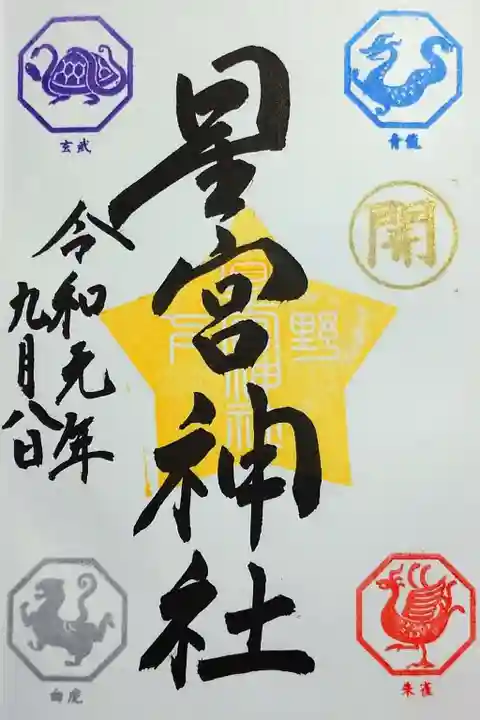 青龍
開
朱雀
星宮神社
玄武
令和元年
九月八日
白虎